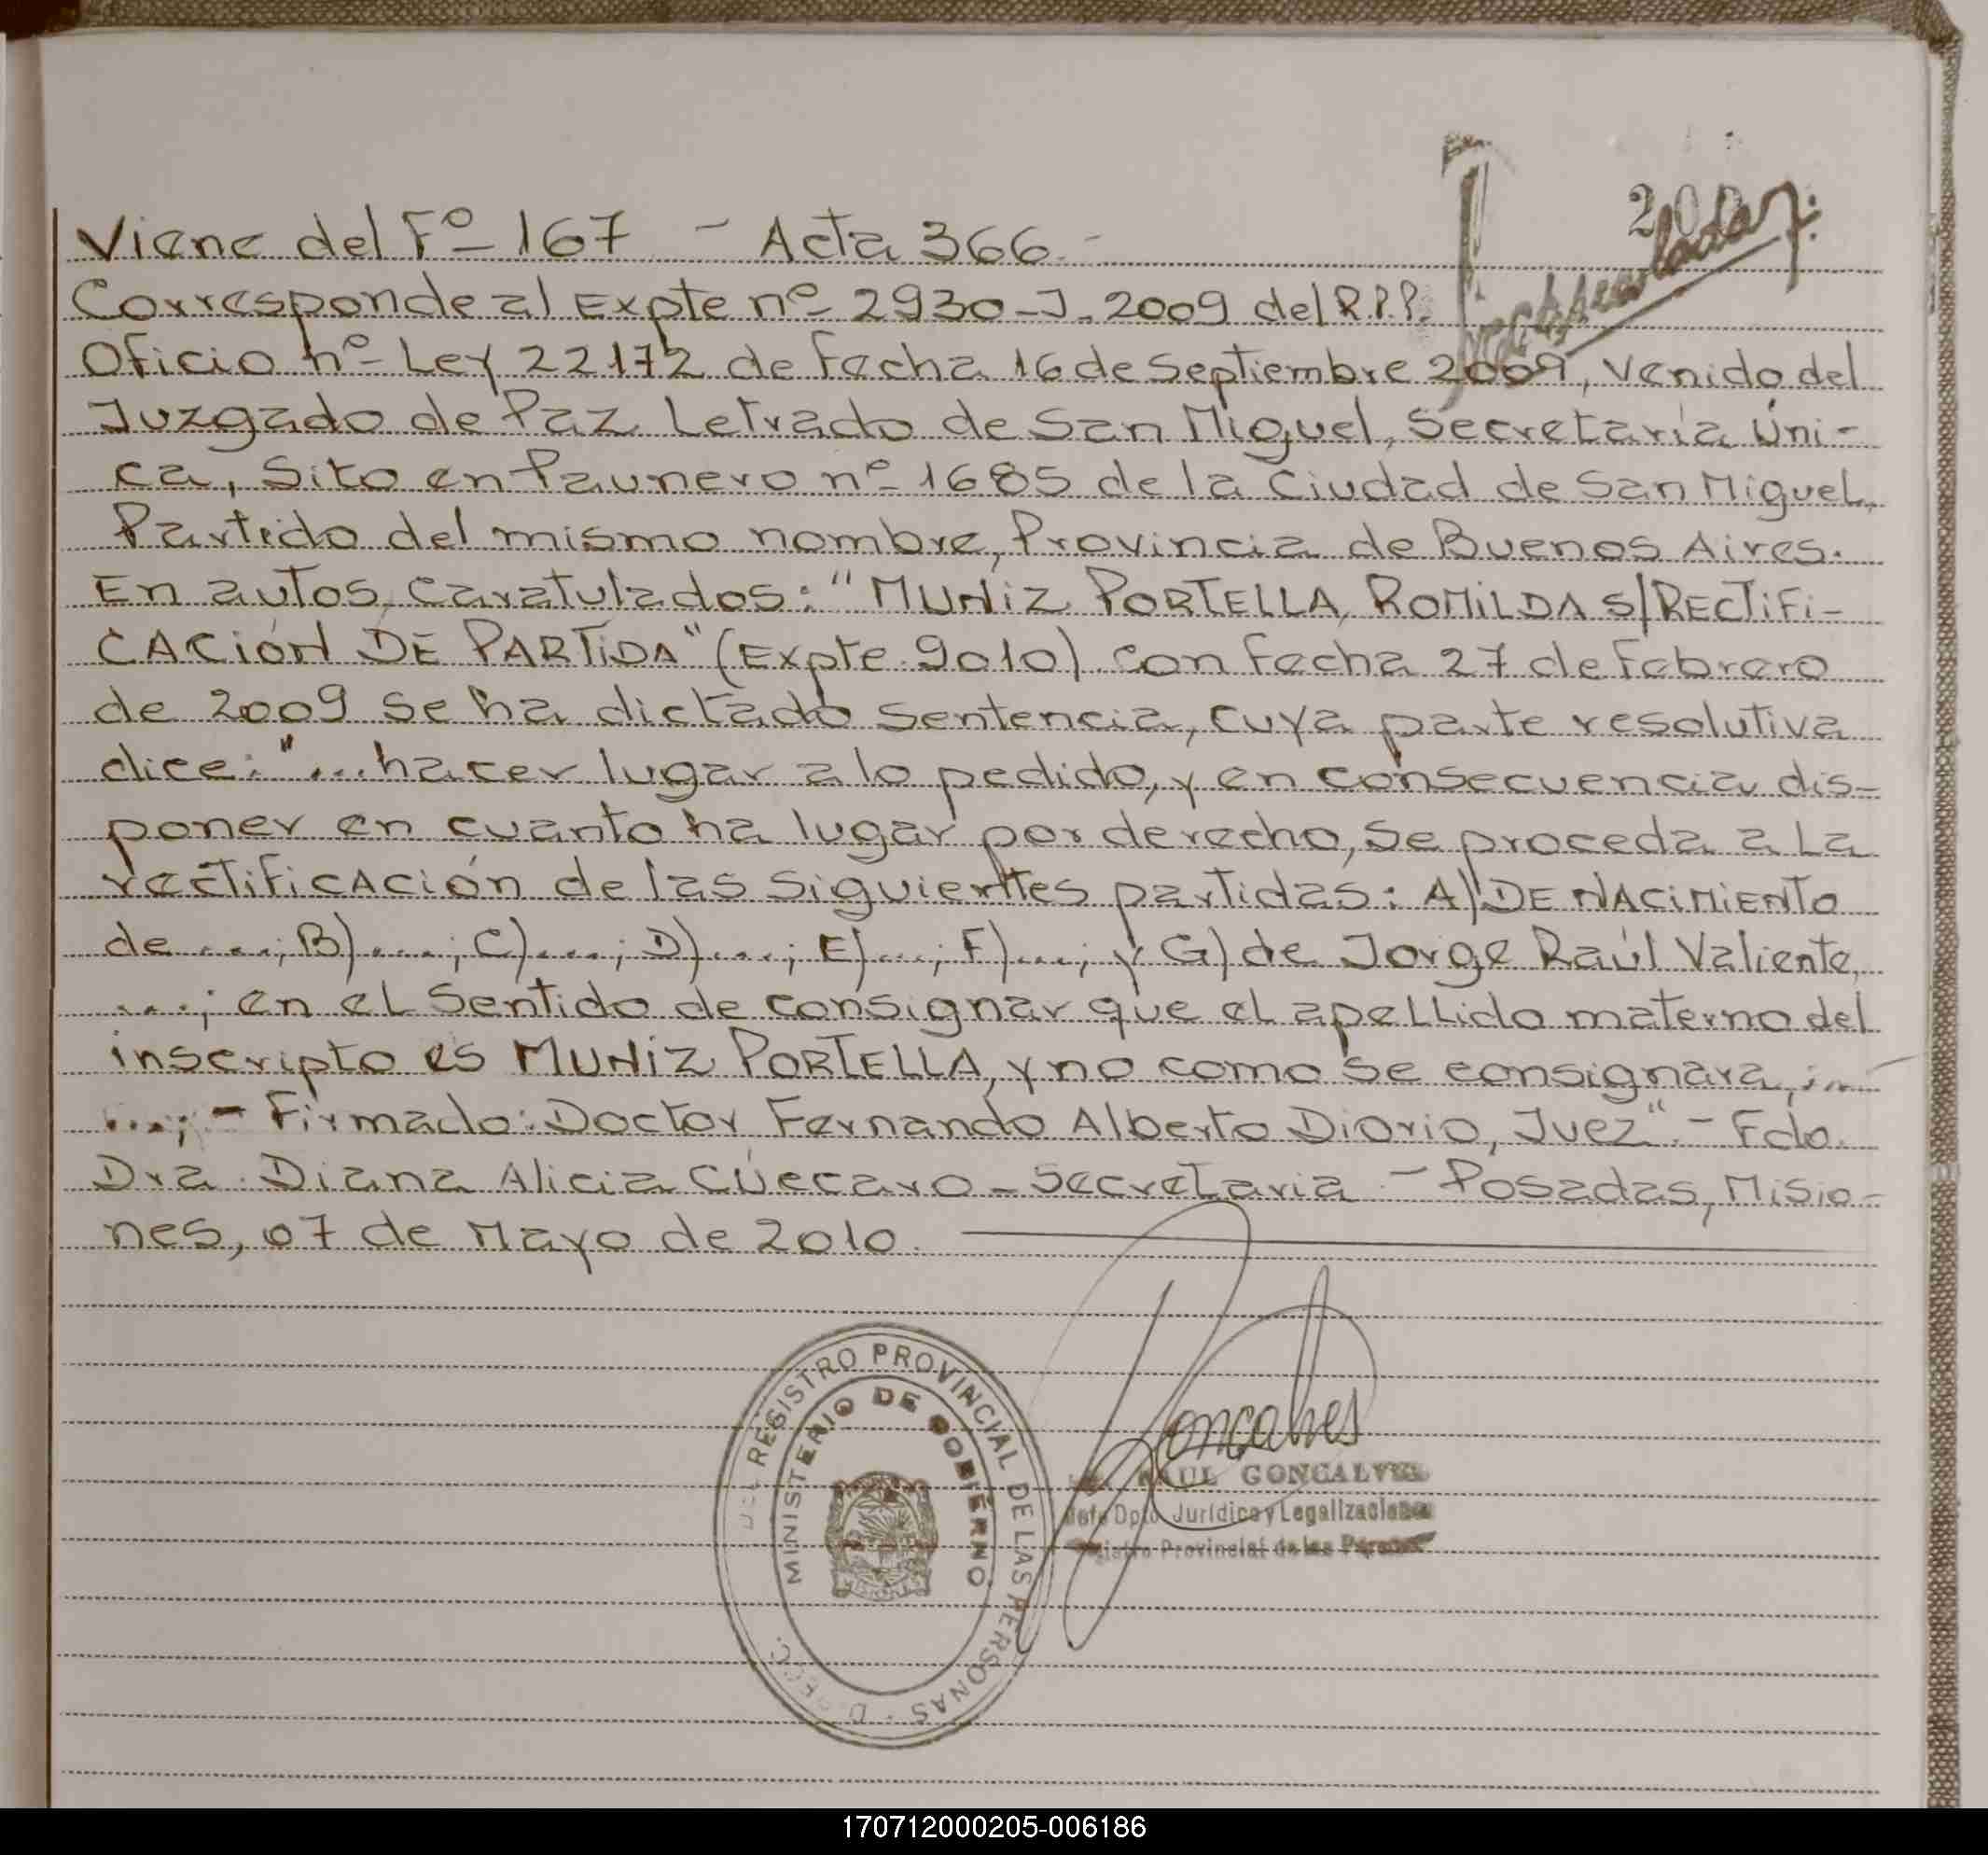 Viene del Fº 167 - Acta 366.-
Corresponde al Expte nº 2930-J-2009 del R.P.P.
Oficio nº Ley 22172 de fecha 16 de Septiembre 2009, venido del
Juzgado de Paz Letrado de San Miguel, Secretaría Úni-
ca, Sito en Paunero nº 1685 de la Ciudad de San Miguel,
Partido del mismo nombre, Provincia de Buenos Aires.
En autos caratulados: "MUNIZ PORTELLA, ROMILDA S/RECTIFI-
CACIÓN DE PARTIDA" (Expte 9010) con fecha 27 de Febrero
de 2009 se ha dictado sentencia, cuya parte resolutiva
dice: "...hacer lugar a lo pedido, y en consecuencia dis-
poner en cuanto ha lugar por derecho, se proceda a la
rectificación de las siguientes partidas: A) DE NACIMIENTO
de ....; B) ....; C) ....; D) ....; E) ....; F) ....; y G) de Jorge Raúl Valiente,
....; en el sentido de consignar que el apellido materno del
inscripto es MUNIZ PORTELLA, y no como se consignara, ;...
....; - Firmado: Doctor Fernando Alberto Diorio, Juez".- Fdo.
Dra. Diana Alicia Cúecaro - Secretaria - Posadas, Misio-
nes, 07 de Mayo de 2010.
REGISTRO PROVINCIAL DE LAS PERSONAS
MINISTERIO DE GOBIERNO
Goncalves
RAUL GONCALVES
Jefe Dpto. Jurídico y Legalizaciones
Registro Provincial de las Personas
170712000205-006186